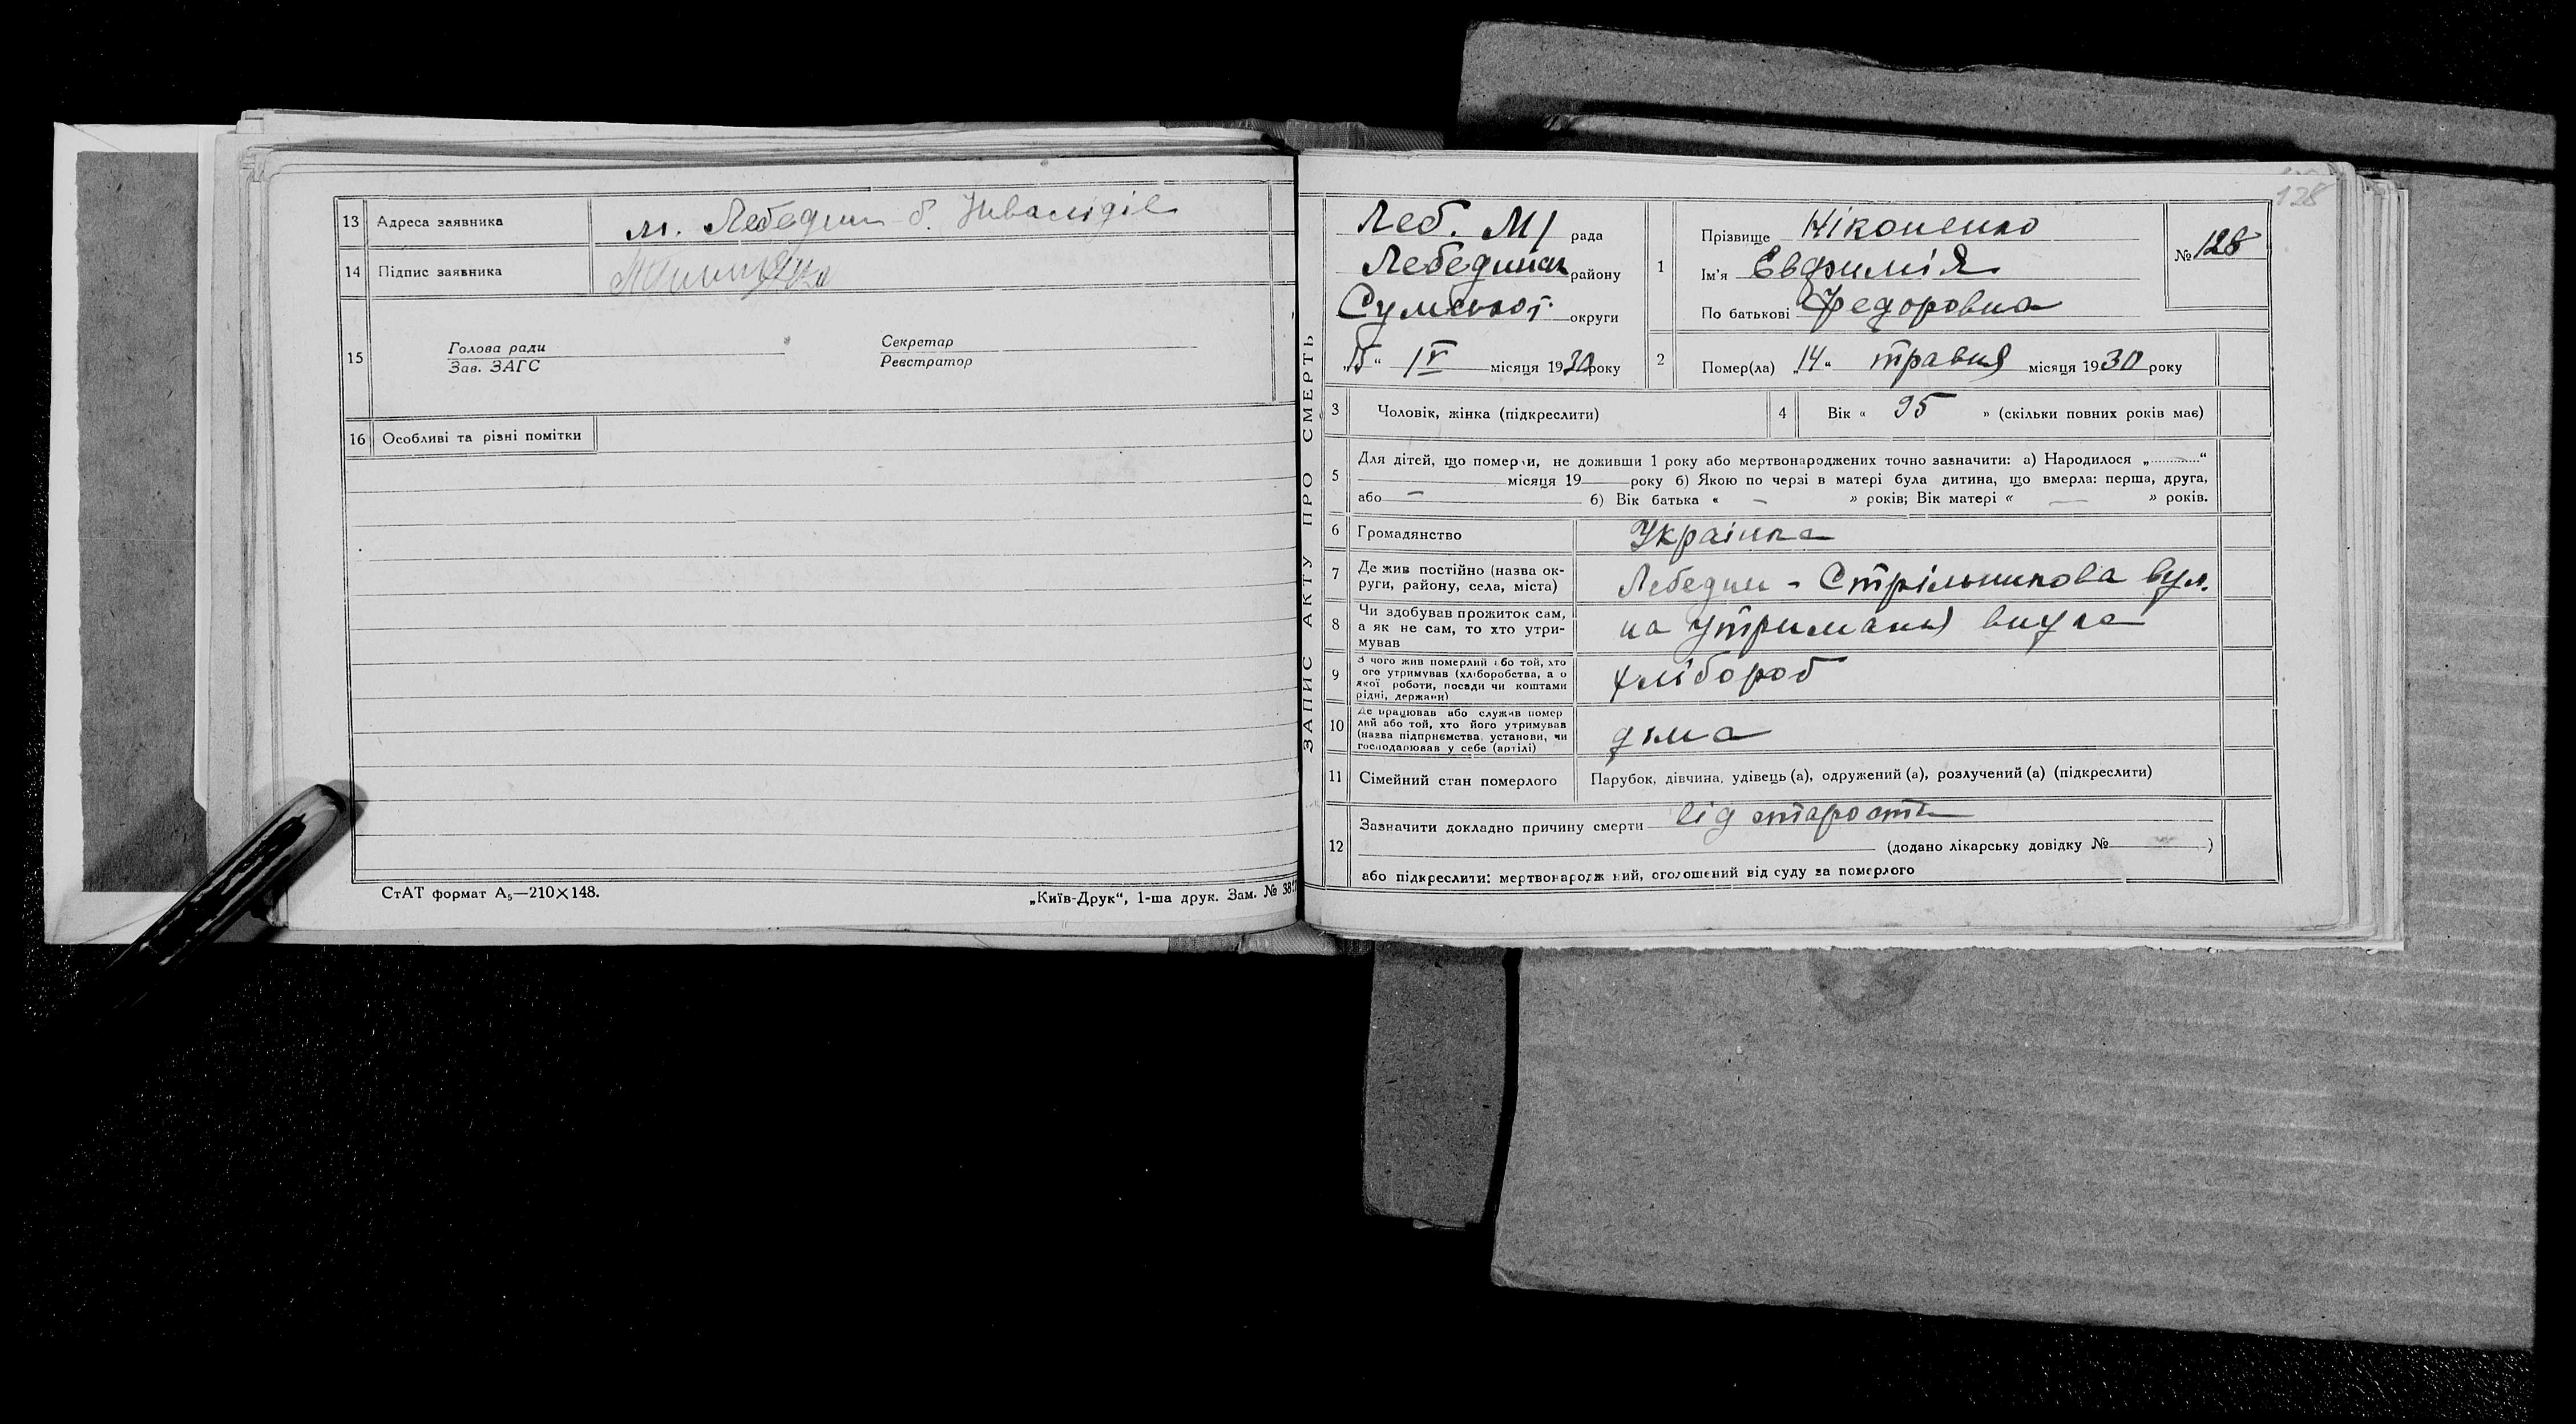 13 Адреса заявника м. Лебедин б. Інвалідів
14 Підпис заявника
15 Голова ради Секретар
Зав. ЗАГС Реєстратор
16 Особливі та різні помітки
СтАТ формат А₅—210×148.
„Київ-Друк“, 1-ша друк. Зам. №
ЗАПИС АКТУ ПРО СМЕРТЬ
138
Леб. М/ рада
Лебединськ району
Сумської округи
„15“ IV місяця 1930 року
1 Прізвище Ніконенко
Ім'я Евфимія
По батькові Федоровна
№ 128
2 Помер(ла) „14“ травня місяця 1930 року
3 Чоловік, жінка (підкреслити)
4 Вік « 95 » (скільки повних років має)
5 Для дітей, що померли, не доживши 1 року або мертвонароджених точно зазначити: а) Народилося „ “
місяця 19 року б) Якою по черзі в матері була дитина, що вмерла: перша, друга,
або — б) Вік батька « — » років; Вік матері « — » років.
6 Громадянство Українка
7 Де жив постійно (назва ок-
руги, району, села, міста) Лебедин - Стрільникова вул.
8 Чи здобував прожиток сам,
а як не сам, то хто утри-
мував на утриманні внука
9 З чого жив померлий або той, хто
ого утримував (хліборобства, а о
якої роботи, посади чи коштами
рідні, держави) хлібороб
10 Де працював або служив помер
лий або той, хто його утримував
(назва підприємства, установи, чи
господарював у себе (артілі) дома
11 Сімейний стан померлого Парубок, дівчина, удівець (а), одружений (а), розлучений (а) (підкреслити)
12 Зазначити докладно причину смерти від старости
(додано лікарську довідку № — )
або підкреслити: мертвонародж ний, оголошений від суду за померлого